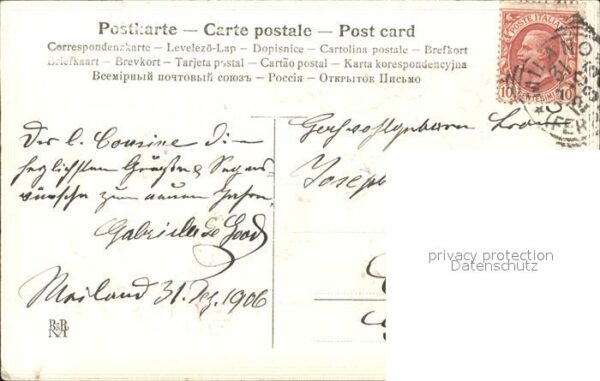 Postkarte — Carte postale — Post card
Correspondenzkarte — Levelező-Lap — Dopisnice — Cartolina postale — Brefkort
Briefkaart — Brevkort — Tarjeta postal — Cartão postal — Karta korespondencyjna
Всемірный почтовый союзъ — Россія — Открытое Письмо
POSTE ITALIANE
10 10
FER
Der l. Cousine die
herzlichsten Grüße & Segens
wünsche zum neuen Jahre,
Gabriele de
Mailand 31. Dez. 1906
Hochwohlgeboren
Joseph
privacy protection
Datenschutz